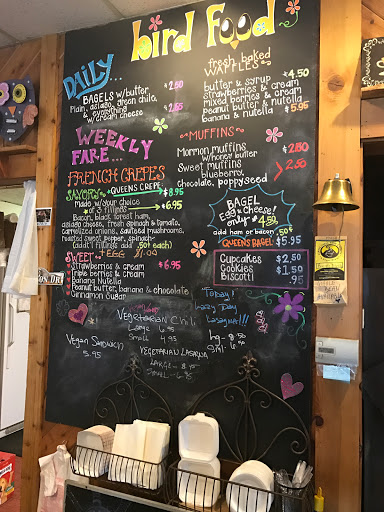 bird food
DAILY...
BAGELS w/butter $2.50
Plain, asiago, green chile,
& everything
w/cream cheese
WEEKLY
FARE...
FRENCH CREPES
SAVORY QUEENS CREPE $8.95
Made w/your choice $6.95
of 3 fillings
Bacon, black forest ham,
asiago cheese, fresh spinach & tomato,
carmelized onions, sauteed mushrooms,
roasted sweet pepper, spinach
(addt'l fillings add .50¢ each)
EGG $1.00
SWEET $6.95
Strawberries & cream
Triple berries & cream
Banana Nutella
Peanut butter, banana & chocolate
Cinnamon Sugar
fresh baked
WAFFLES
butter & syrup $4.50
strawberries & cream
mixed berries & cream
peanut butter & nutella
banana & nutella $5.95
MUFFINS
Mormon muffins
w/honey butter
Sweet muffins 2.50
blueberry,
chocolate, poppyseed
BAGEL
Egg & Cheese!
only $4.50
add ham or bacon .50¢
QUEENS BAGEL $5.95
Cupcakes $2.50
Cookies $1.50
Biscotti .95
Vegetarian Chili
Large 6.95
Small 4.95
Vegan Sandwich
5.95
VEGETARIAN LASAGNA
LARGE
SMALL
Today!
Lazy Day
Lasagna!!!